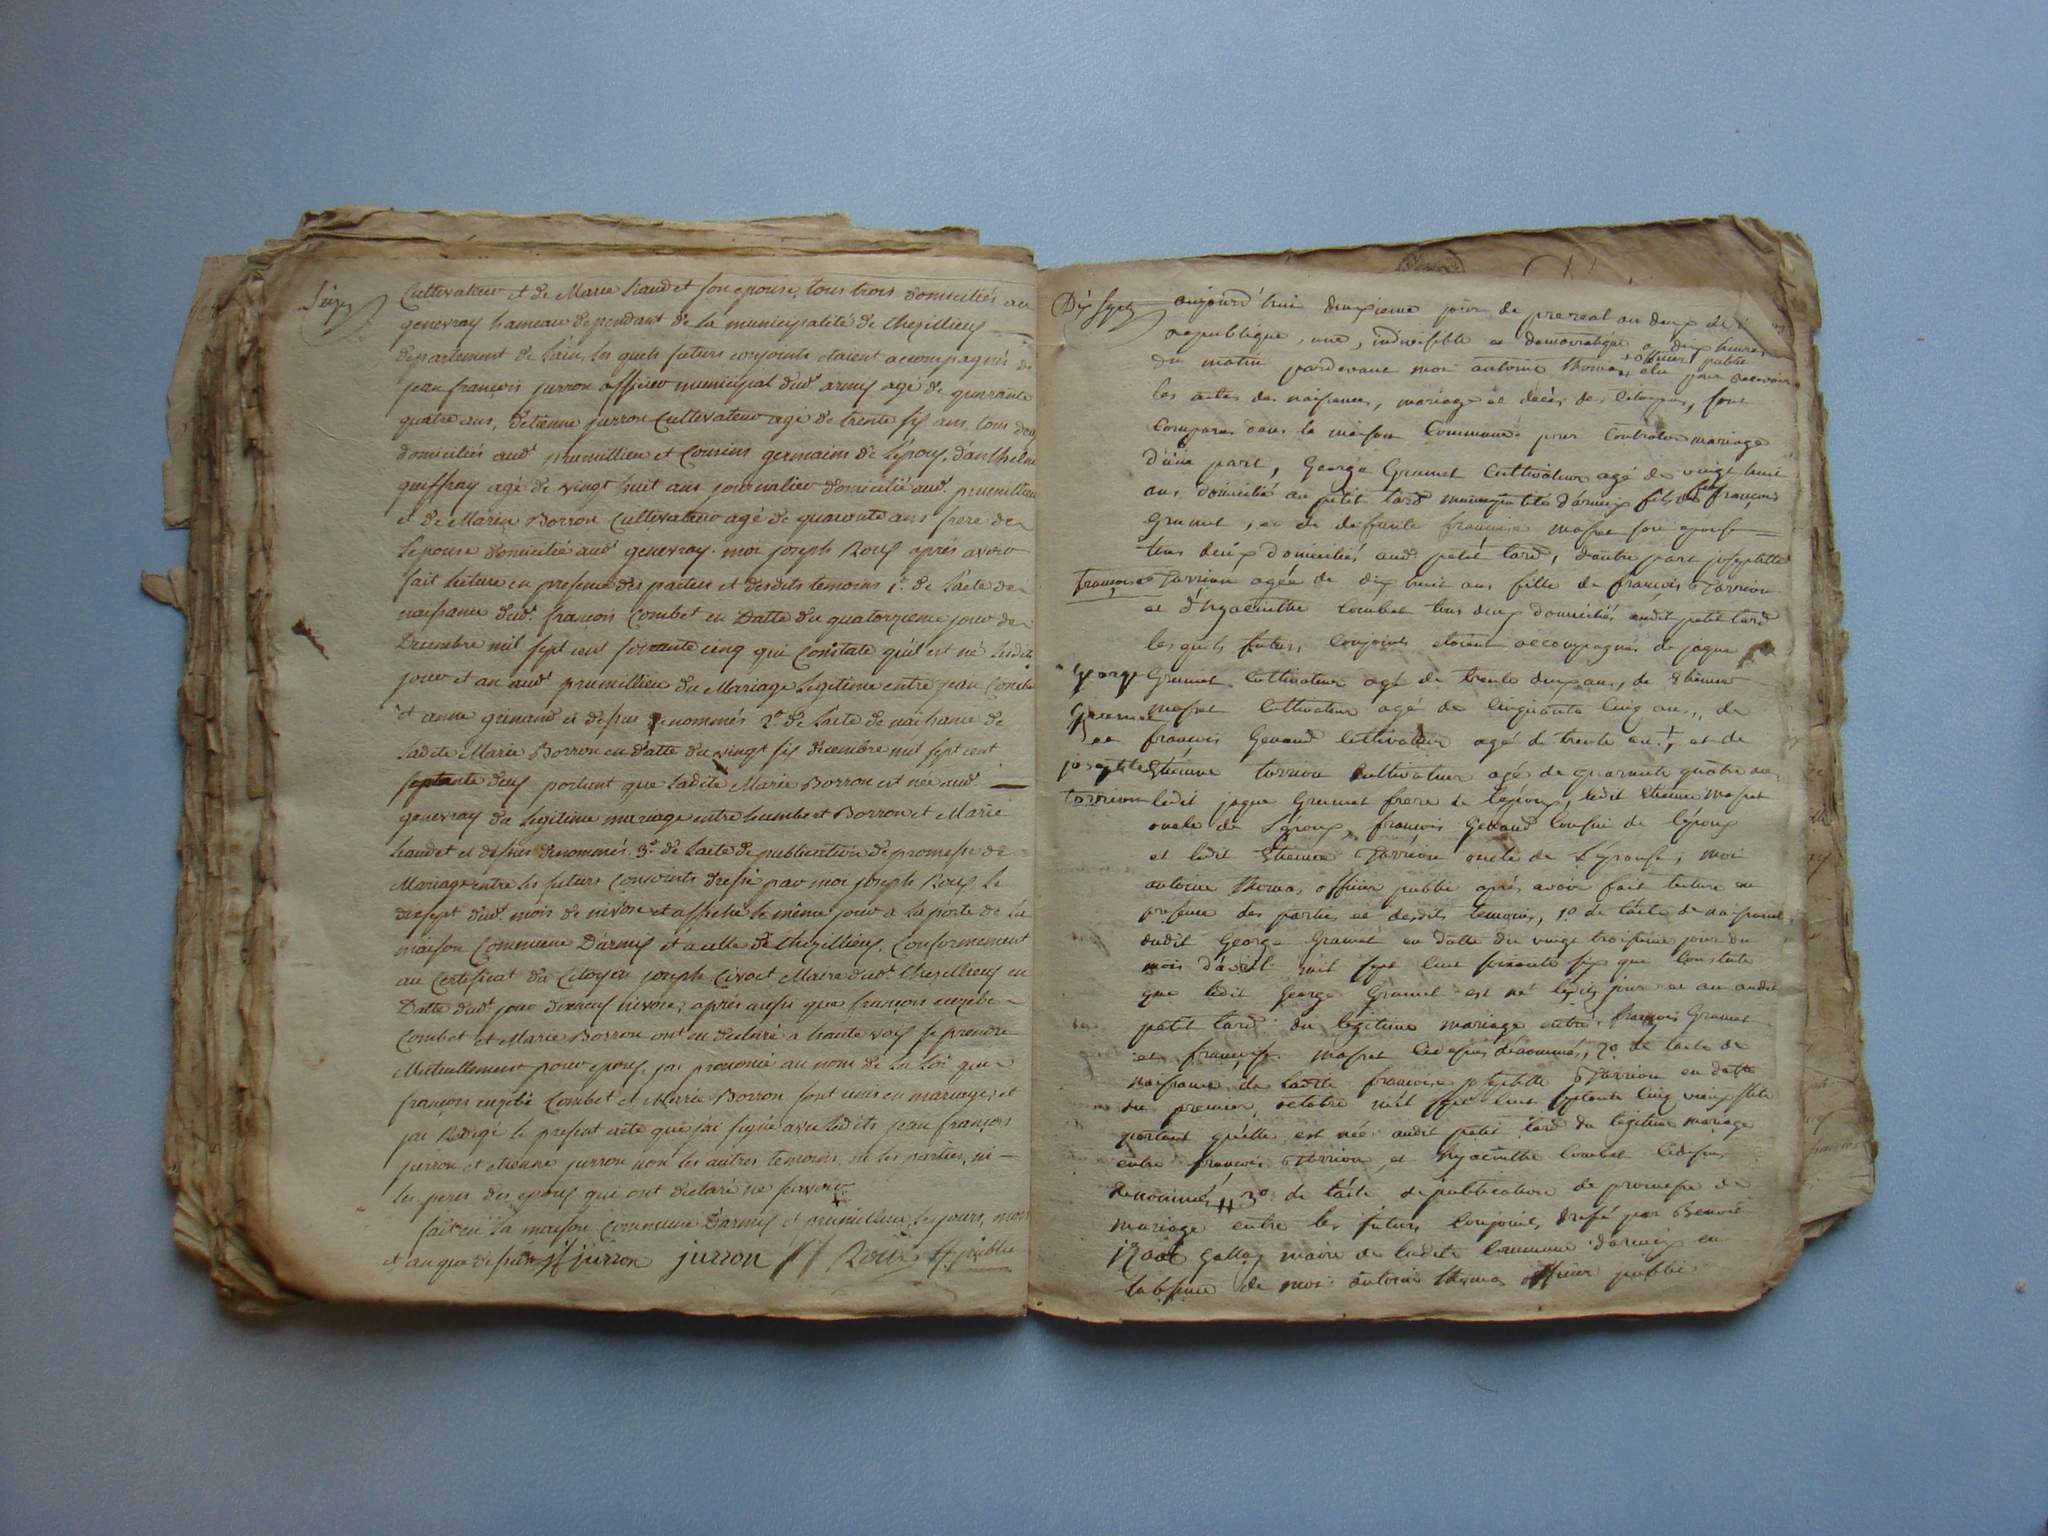 Seize
Cultivateur et de Marie Liaudet son epouse, tous trois domiciliés au
genevray hameau dependant de la municipalité de Chezillieux
departement de l'ain, les quels futurs conjoints etaient accompagnés de
jean françois jurron officier municipal dud.t armix agé de quarante
quatre ans, d'etienne jurron Cultivateur agé de trente six ans, tous deux
domiciliés aud.t prumillieu et Cousins germains de l'époux, d'anthelme
quiffray agé de vingt huit ans journalier domicilié aud.t prumillieu
et de Marin Borron Cultivateur agé de quarante ans frere de
l'epouse domicilié aud.t genevray. moi joseph Roux après avoir
fait lecture en presence des parties et desdits temoins 1.° de l'acte de
naissance dud.t françois Combet en Datte du quatorzieme jour de
Decembre mil sept cent soixante cinq qui Constate qu'il est né lesdits
jour et an aud.t prumillieu du Mariage Legitime entre jean Combet
et anne grinand ci dessus denommés 2.° de l'acte de naissance de
ladite Marie Borron en datte du vingt six decembre mil sept cent
septante deux portant que ladite Marie Borron est née aud.t
genevray du Legitime mariage entre humbert Borron et Marie
Liaudet ci dessus denommés 3.° de l'acte de publication de promesse de
Mariage entre les futurs Conjoints dressé par moi joseph Roux le
dixsept dud.t mois de nivôse et affiché le même jour a la porte de la
maison Commune D'armix et a celle de Chezillieux, Conformement
au Certificat du Citoyen joseph Civoct Maire dud.t Chezillieux en
Datte dud.t jour dixneuf nivôse; après aussi que françois euzebe
Combet et Marie Borron ont eu declaré a haute voix se prendre
Mutuellement pour epoux, j'ai prononcé au nom de La Loi que
françois euzebe Combet et Marie Borron sont unis en mariage, et
j'ai Redigé le present acte que j'ai signé avec lesdits jean françois
jurron et etienne jurron non les autres temoins ni les parties, ni
les peres des epoux qui ont declaré ne sçavoir
fait en la maison Commune D'armix et prumillieu, les jours, mois
et an que dessus jf jurron jurron Roux off. public
Dix sept
aujourd'hui deuxieme jour de prereal an deux de
republique, une, indivisible et democratique a dix heures
du matin pardevant moi antoine thomas officier public elu pour recevoir
les actes des naissances, mariage et décès des Citoyens, sont
Comparus dans la maison Commune pour Contracter mariage
d'une part, George Grumet Cultivateur agé de vingt huit
ans domicilié au petit tard municipalité d'armix fils de françois
Grumet, et de defunte françoise masset son epouse
tous deux domiciliés aud. petit tard, d'autre part josephtte
françoise Torrion agée de dix huit ans fille de françois Torrion
et d'hyacinthe Combet tous deux domiciliés audit petit tard
lesquels futurs conjoints etoient accompagnés de jaque
George Grumet Cultivateur agé de trente deux ans, de Etienne
Grumet masset Cultivateur agé de Cinquante Cinq ans, de
et françois Genaud Cultivateur agé de trente an, et de
josephtte Etienne torrion Cultivateur agé de quarante quatre ans
torrion ledit jaque Grumet frere de l'epoux, ledit Etienne masset
oncle de l'époux, françois Genaud Cousin de l'époux
et ledit Etienne Torrion oncle de l'épouse, moi
antoine thomas officier public après avoir fait lecture en
presence des parties et desdits temoins, 1.° de l'acte de naissance
dudit George Grumet en datte du vingt troisieme jour du
mois d'avril mil sept cent soixante six qui Constate
que ledit George Grumet est né lesdits jour et an audit
petit tard du legitime mariage entre françois Grumet
et françoise masset cidessus dénommés, 2.° de l'acte de
naissance de ladite françoise josephtte Torrion en datte
du premier octobre mil sept cent septante cinq vieux stile
portant quelle est née audit petit tard du legitime mariage
entre françois Torrion, et hyacinthe Combet cidessus
denommés, 3.° de l'acte de publication de promesse de
mariage entre les futurs Conjoints, dressé par Benoit
Gallay maire de ladite Commune d'armix en
labsence de moi antoine thomas officier public